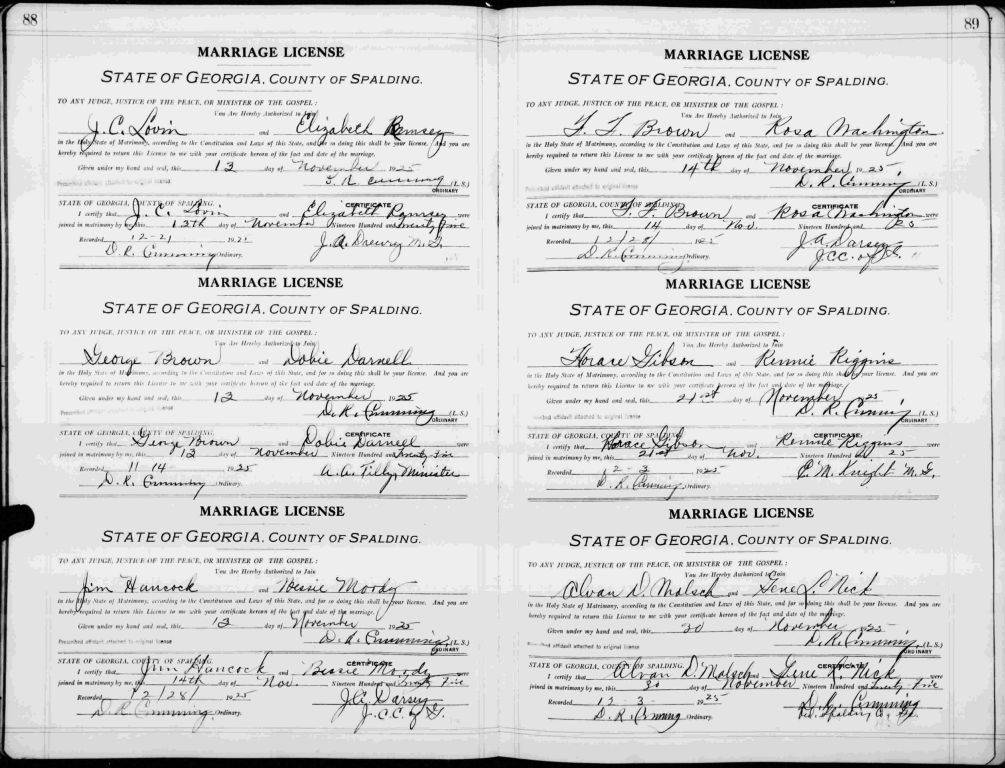 88
MARRIAGE LICENSE
STATE OF GEORGIA, COUNTY OF SPALDING.
TO ANY JUDGE, JUSTICE OF THE PEACE, OR MINISTER OF THE GOSPEL:
You Are Hereby Authorized to Join
J. C. Lovin and Elizabeth Ramsey
in the Holy State of Matrimony, according to the Constitution and Laws of this State, and for so doing this shall be your license. And you are
hereby required to return this License to me with your certificate hereon of the fact and date of the marriage.
Given under my hand and seal, this 13 day of November 1925
Prescribed affidavit attached to original license
Cumming (L. S.)
ORDINARY
STATE OF GEORGIA, COUNTY OF SPALDING. CERTIFICATE
I certify that J. C. Lovin and Elizabeth Ramsey were
joined in matrimony by me, this 13th day of November Nineteen Hundred and twenty five
Recorded 12-21 19
J. A. Drewry M. G.
D. R. Cumming Ordinary.
MARRIAGE LICENSE
STATE OF GEORGIA, COUNTY OF SPALDING.
TO ANY JUDGE, JUSTICE OF THE PEACE, OR MINISTER OF THE GOSPEL:
You Are Hereby Authorized to Join
George Brown and Dobie Darnell
in the Holy State of Matrimony, according to the Constitution and Laws of this State, and for so doing this shall be your license. And you are
hereby required to return this License to me with your certificate hereon of the fact and date of the marriage.
Given under my hand and seal, this 12 day of November 1925
Prescribed affidavit attached to original license
D. R. Cumming (L. S.)
ORDINARY
STATE OF GEORGIA, COUNTY OF SPALDING. CERTIFICATE
I certify that George Brown and Dobie Darnell were
joined in matrimony by me, this 12 day of November Nineteen Hundred and twenty five
Recorded 11 14 1925
A. A. Tilly, Minister
D. R. Cumming Ordinary.
MARRIAGE LICENSE
STATE OF GEORGIA, COUNTY OF SPALDING.
TO ANY JUDGE, JUSTICE OF THE PEACE, OR MINISTER OF THE GOSPEL:
You Are Hereby Authorized to Join
Jim Hancock and Bessie Moody
in the Holy State of Matrimony, according to the Constitution and Laws of this State, and for so doing this shall be your license. And you are
hereby required to return this License to me with your certificate hereon of the fact and date of the marriage.
Given under my hand and seal, this 12 day of November 1925
Prescribed affidavit attached to original license
D. R. Cumming (L. S.)
ORDINARY
STATE OF GEORGIA, COUNTY OF SPALDING. CERTIFICATE
I certify that Jim Hancock and Bessie Moody were
joined in matrimony by me, this 14th day of Nov. Nineteen Hundred and twenty five
Recorded 12/28/ 1925
J. A. Darsey
D. R. Cumming Ordinary.
J. C. C. of G.
89
MARRIAGE LICENSE
STATE OF GEORGIA, COUNTY OF SPALDING.
TO ANY JUDGE, JUSTICE OF THE PEACE, OR MINISTER OF THE GOSPEL:
You Are Hereby Authorized to Join
T. T. Brown and Rosa Washington
in the Holy State of Matrimony, according to the Constitution and Laws of this State, and for so doing this shall be your license. And you are
hereby required to return this License to me with your certificate hereon of the fact and date of the marriage.
Given under my hand and seal, this 14th day of November 1925
Prescribed affidavit attached to original license
D. R. Cumming (L. S.)
ORDINARY
STATE OF GEORGIA, COUNTY OF SPALDING. CERTIFICATE
I certify that T. T. Brown and Rosa Washington were
joined in matrimony by me, this 14 day of Nov. Nineteen Hundred and 25
Recorded 12/28/ 1925
J A Darsey
D. R. Cumming Ordinary.
J C C. of G.
MARRIAGE LICENSE
STATE OF GEORGIA, COUNTY OF SPALDING.
TO ANY JUDGE, JUSTICE OF THE PEACE, OR MINISTER OF THE GOSPEL:
You Are Hereby Authorized to Join
Horace Gibson and Rennie Riggins
in the Holy State of Matrimony, according to the Constitution and Laws of this State, and for so doing this shall be your license. And you are
hereby required to return this License to me with your certificate hereon of the fact and date of the marriage.
Given under my hand and seal, this 21st day of November 1925
Prescribed affidavit attached to original license
D. R. Cumming (L. S.)
ORDINARY
STATE OF GEORGIA, COUNTY OF SPALDING. CERTIFICATE
I certify that Horace Gibson and Rennie Riggins were
joined in matrimony by me, this 21st day of Nov. Nineteen Hundred and 25
Recorded 12-3 1925
E. M. Knight M. G.
D. R. Cumming Ordinary.
MARRIAGE LICENSE
STATE OF GEORGIA, COUNTY OF SPALDING.
TO ANY JUDGE, JUSTICE OF THE PEACE, OR MINISTER OF THE GOSPEL:
You Are Hereby Authorized to Join
Alvan D. Malsch and Gene L. Nick
in the Holy State of Matrimony, according to the Constitution and Laws of this State, and for so doing this shall be your license. And you are
hereby required to return this License to me with your certificate hereon of the fact and date of the marriage.
Given under my hand and seal, this 30 day of November 1925
Prescribed affidavit attached to original license
D. R. Cumming (L. S.)
ORDINARY
STATE OF GEORGIA, COUNTY OF SPALDING. CERTIFICATE
I certify that Alvan D. Malsch and Gene L. Nick were
joined in matrimony by me, this 30 day of November Nineteen Hundred and twenty five
Recorded 12 3 1925
D. R. Cumming
D. R. Cumming Ordinary.
Spalding Co., Ga.